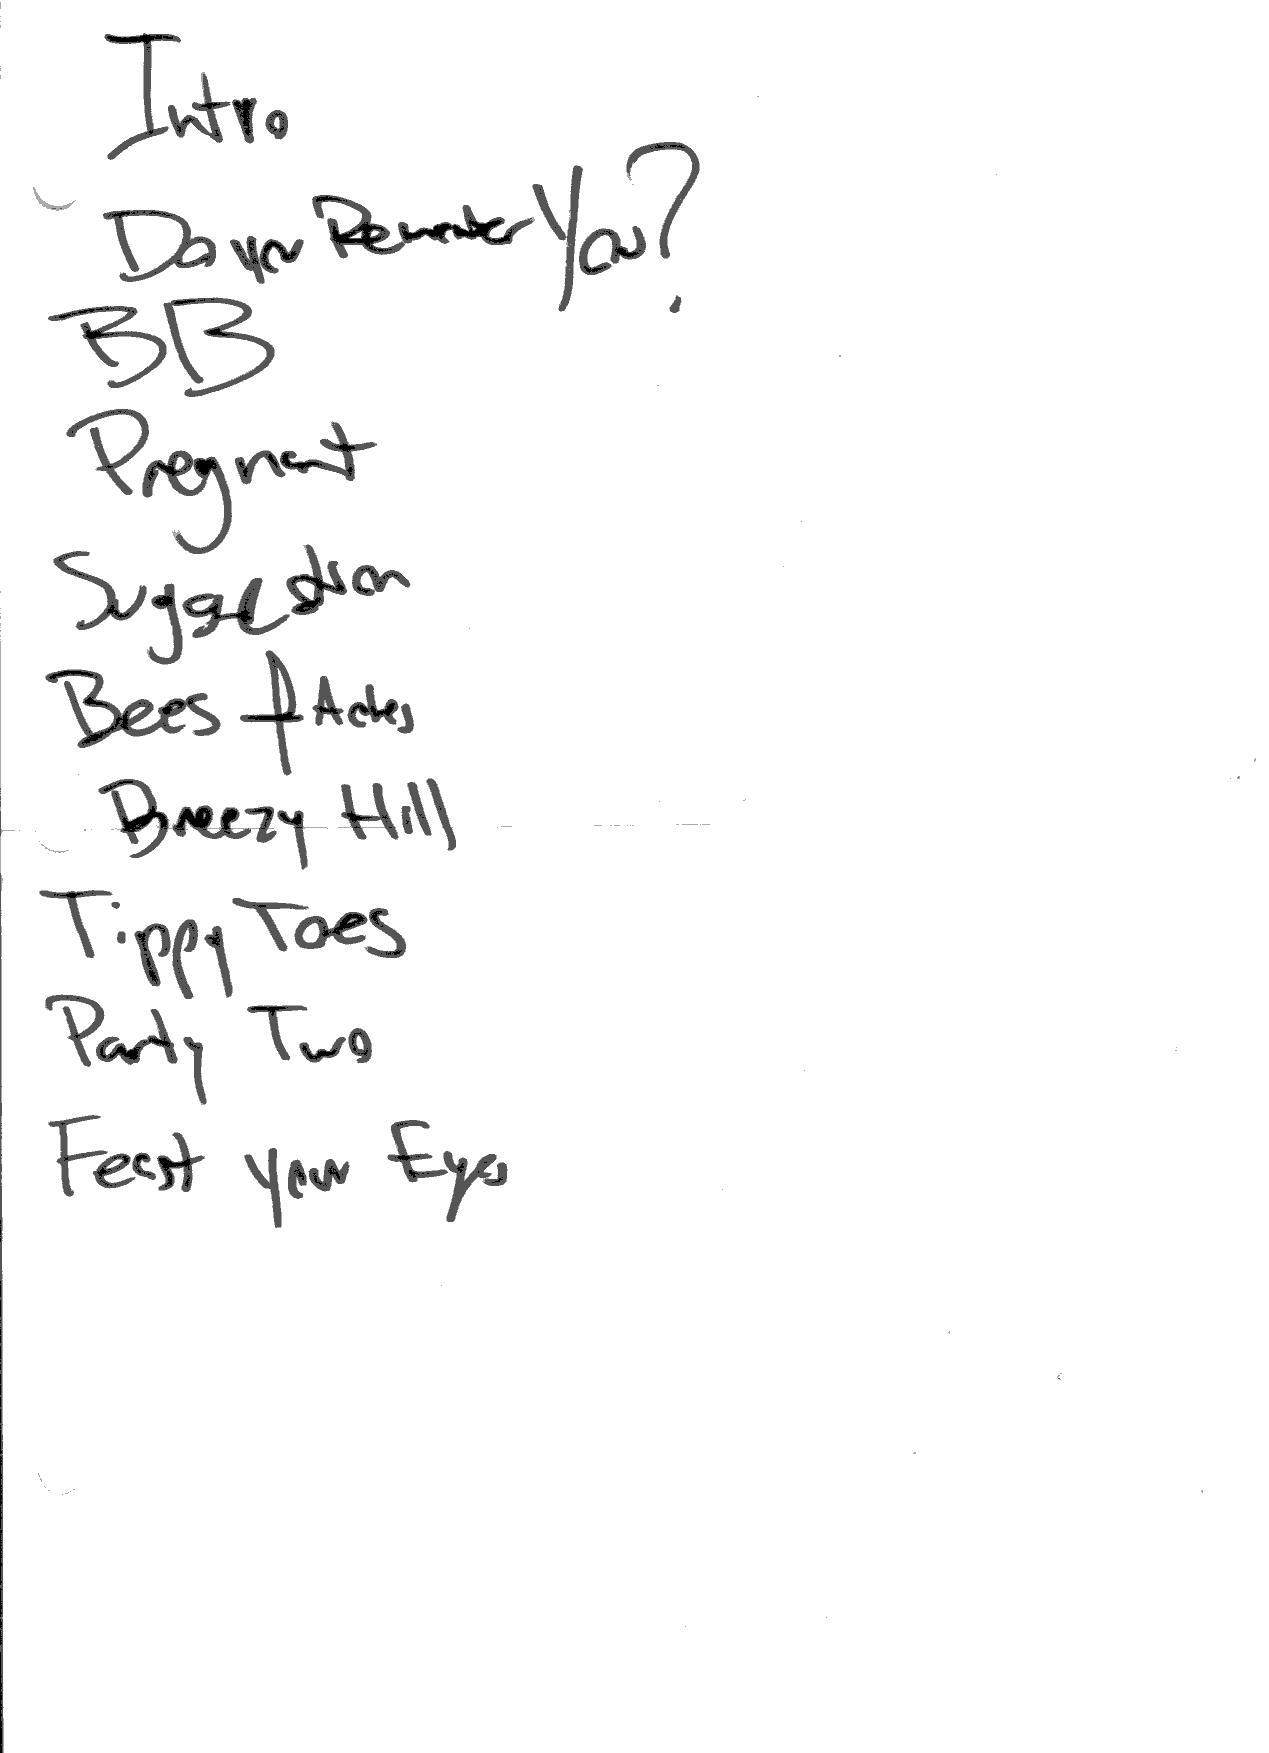 Intro
Do you Remember You?
BB
Pregnant
Suggestion
Bees & Aches
Breezy Hill
Tippy Toes
Party Two
Feast your Eyes